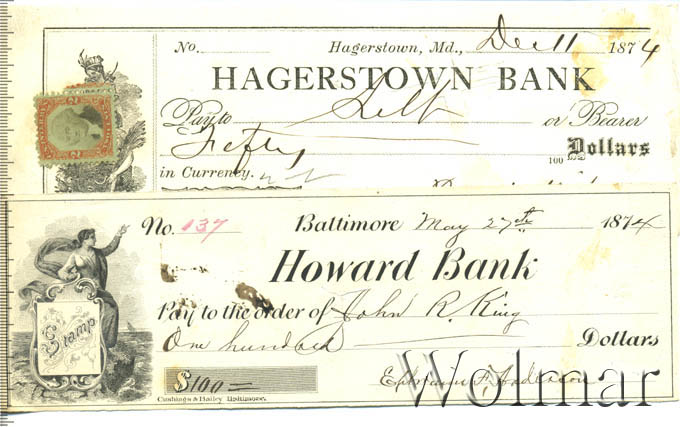 No. Hagerstown, Md., Dec 11 1874
HAGERSTOWN BANK
Pay to Self or Bearer
Fifty 100 Dollars
in Currency.
No. 137 Baltimore May 27th 1874
Howard Bank
Pay to the order of John R. King
One hundred Dollars
Stamp
$100 =
Ephraim F. Anderson
Cushings & Bailey Baltimore.
Wolmar